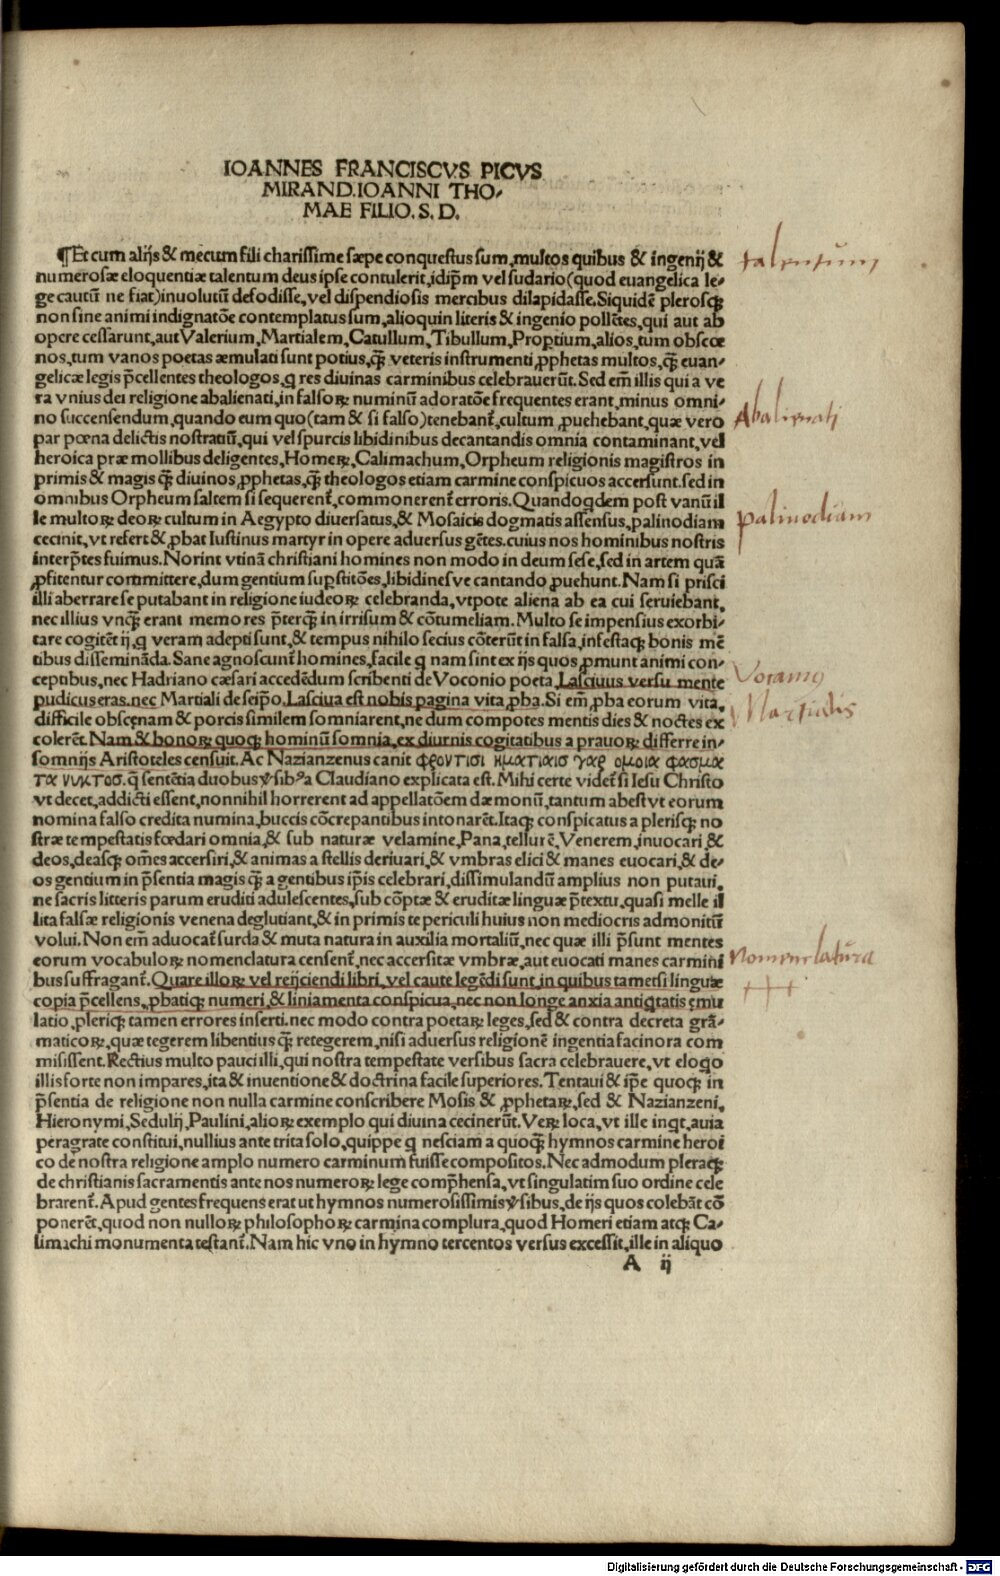 IOANNES FRANCISCVS PICVS
MIRAND.IOANNI THO-
MAE FILIO.S.D.
¶Et cum alijs & mecum fili charissime sæpe conquestus sum,multos quibus & ingenij & talentum
numerosæ eloquentiæ talentum deus ipse contulerit,idip̄m vel sudario(quod euangelica le-
ge cautū ne fiat)inuolutū defodisse,vel dispendiosis mercibus dilapidasse.Siquidē plerosq;
non sine animi indignatōe contemplatus sum,alioquin literis & ingenio pollētes,qui aut ab
opere cessarunt,aut Valerium,Martialem,Catullum,Tibullum,Propertium,alios,tum obscœ
nos,tum vanos poetas æmulati sunt potius,q̄ȝ veteris instrumenti ꝓphetas multos,q̄ȝ euan-
gelicæ legis p̄cellentes theologos,q res diuinas carminibus celebrauerūt.Sed em̄ illis qui a ve
ra vnius dei religione abalienati,in falsoꝝ numinū adoratōe frequentes erant,minus omni- Abalienati
no succensendum,quando eum quo(tam & si falso)tenebant̄,cultum ꝓuehebant,quæ vero
par pœna delictis nostratiū,qui vel spurcis libidinibus decantandis omnia contaminant,vel
heroica præ mollibus deligentes,Homeꝝ,Calimachum,Orpheum religionis magistros in
primis & magis q̄ȝ diuinos ꝓphetas,q̄ȝ theologos etiam carmine conspicuos accersunt.sed in
omnibus Orpheum saltem si sequerent̄,commonerent̄ erroris.Quandoqdem post vanū il
le multoꝝ deoꝝ cultum in Aegypto diuersatus,& Mosaicis dogmatis assensus,palinodiam palinodiam
cecinit,vt refert & ꝓbat Iustinus martyr in opere aduersus gētes.cuius nos hominibus nostris
interp̄tes fuimus.Norint vtinā christiani homines non modo in deum sese,sed in artem quā
ꝓfitentur committere,dum gentium suꝑstitōes,libidinesve cantando ꝓuehunt.Nam si prisci
illi aberrare se putabant in religione iudeoꝝ celebranda,vtpote aliena ab ea cui seruiebant,
nec illius vnq̄ȝ erant memores p̄terq̄ȝ in irrisum & cōtumeliam.Multo se impensius exorbi-
tare cogitēt ij,q veram adepti sunt,& tempus nihilo secius cōterūt in falsa,infestaq; bonis mē
tibus dissemināda.Sane agnoscunt̄ homines,facile q nam sint ex ijs quos ꝓmunt animi con-
ceptibus,nec Hadriano cæsari accedēdum scribenti de Voconio poeta,Lasciuus versu mente
pudicus eras.nec Martiali de seip̄o,Lasciua est nobis pagina vita ꝓba.Si em̄ ꝓba eorum vita, Martialis
difficile obscenam & porcis similem somniarent,ne dum compotes mentis dies & noctes ex
colerēt.Nam & bonoꝝ quoq; hominū somnia,ex diurnis cogitatibus a prauoꝝ differre in-
somnijs Aristoteles censuit.Ac Nazianzenus canit φροντισι ηματιαισ γαρ ομοια φασμα
τα νυκτοσ.q̄ sentētia duobus v̓sib⁹a Claudiano explicata est.Mihi certe videt̄ si Iesu Christo
vt decet,addicti essent,nonnihil horrerent ad appellatōem dæmonū,tantum abest vt eorum
nomina falso credita numina,buccis cōcrepantibus intonarēt.Itaq; conspicatus a plerisq; no
stræ tempestatis fœdari omnia,& sub naturæ velamine,Pana,tellurē,Venerem,inuocari,&
deos,deasq; om̄es accersiri,& animas a stellis deriuari,& vmbras elici & manes euocari,& de-
os gentium in p̄sentia magis q̄ȝ a gentibus ip̄is celebrari,dissimulandū amplius non putaui,
ne sacris litteris parum eruditi adulescentes,sub cōptæ & eruditæ linguæ p̄textu,quasi melle il
lita falsæ religionis venena deglutiant,& in primis te periculi huius non mediocris admonitū
volui.Non em̄ aduocat̄ surda & muta natura in auxilia mortaliū,nec quæ illi p̄sunt mentes
eorum vocabuloꝝ nomenclatura censent̄,nec accersitæ vmbræ,aut euocati manes carmini nomenclatura
bus suffragant̄.Quare illoꝝ vel reijciendi libri,vel caute legēdi sunt,in quibus tametsi linguæ
copia p̄cellens,ꝓbatiq; numeri,& liniamenta conspicua,nec non longe anxia antiqtatis ęmu
latio,pleriq; tamen errores inserti.nec modo contra poetaꝝ leges,sed & contra decreta grā-
maticoꝝ,quæ tegerem libentius q̄ȝ retegerem,nisi aduersus religionē ingentia facinora com
misissent.Rectius multo pauci illi,qui nostra tempestate versibus sacra celebrauere,vt eloqo
illis forte non impares,ita & inuentione & doctrina facile superiores.Tentaui & ip̄e quoq; in
p̄sentia de religione non nulla carmine conscribere Mosis & ꝓphetaꝝ,sed & Nazianzeni,
Hieronymi,Sedulij,Paulini,alioꝝ exemplo qui diuina cecinerūt.Veꝝ loca,vt ille inqt,auia
peragrate constitui,nullius ante trita solo,quippe q nesciam a quoq; hymnos carmine heroi
co de nostra religione amplo numero carminum fuisse compositos.Nec admodum pleraq;
de christianis sacramentis ante nos numeroꝝ lege comp̄hensa,vt singulatim suo ordine cele
brarent̄.Apud gentes frequens erat ut hymnos numerosissimis v̓sibus,de ijs quos colebāt cō
ponerēt,quod non nulloꝝ philosophoꝝ carmina complura,quod Homeri etiam atq; Ca-
limachi monumenta testant̄.Nam hic vno in hymno tercentos versus excessit,ille in aliquo
A ij
Digitalisierung gefördert durch die Deutsche Forschungsgemeinschaft - DFG